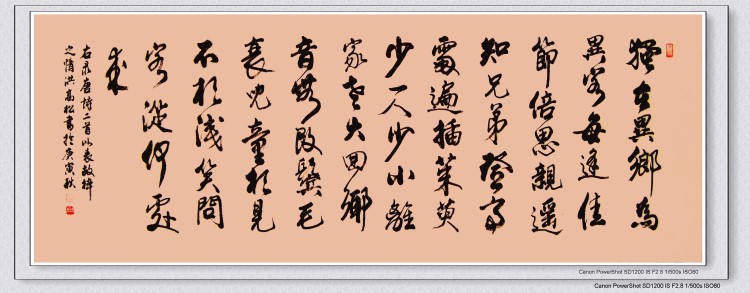 獨在異鄉為
異客每逢佳
節倍思親遥
知兄弟登高
處遍插茱萸
少一人少小離
家老大回鄉
音無改鬢毛
衰兒童相見
不相識笑問
客從何處
來
右录唐詩二首以表故梓
之情洪高松書於庚寅秋
Canon PowerShot SD1200 IS F2.8 1/500s ISO80
Canon PowerShot SD1200 IS F2.8 1/500s ISO80